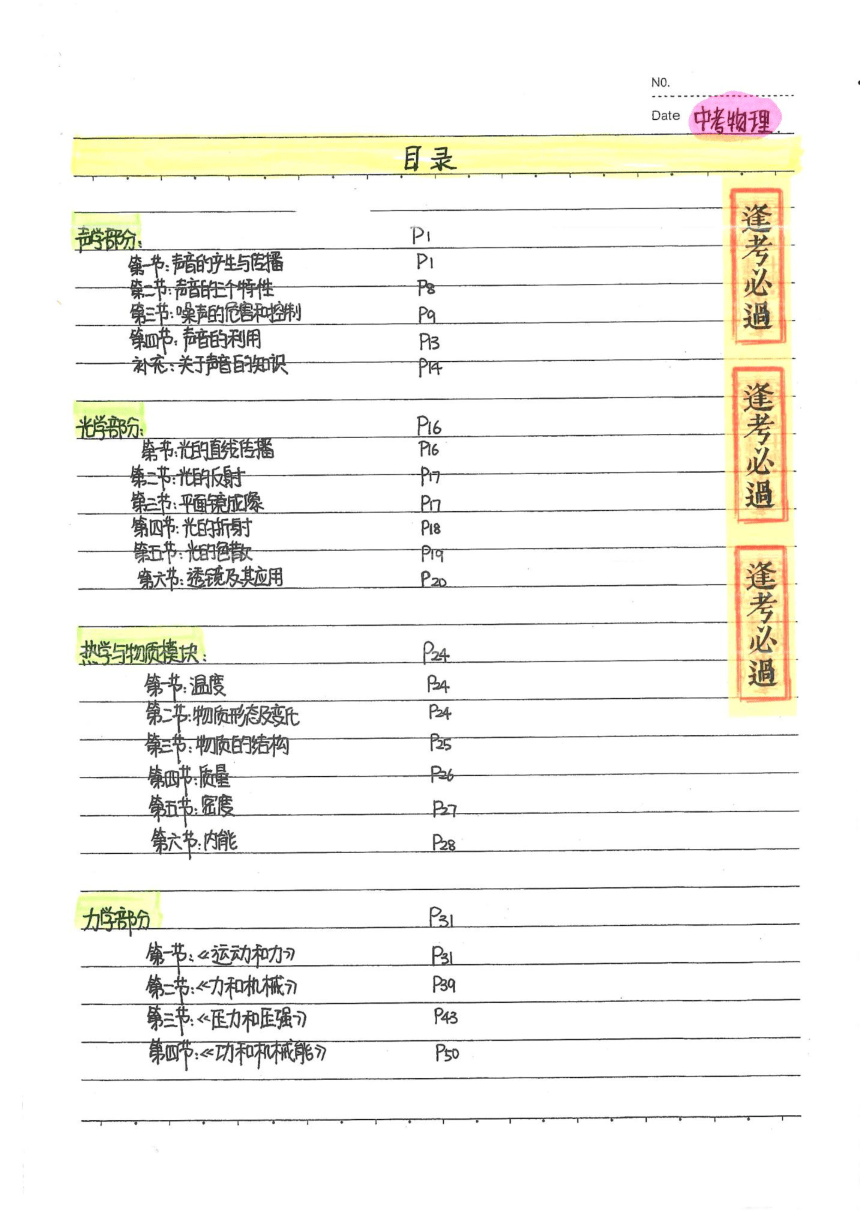 NO.
Date 中考物理
目录
逢考必過
逢考必過
逢考必過
声学部分: P1
第一节:声音的产生与传播 P1
第二节:声音的三个特性 P8
第三节:噪声的危害和控制 P9
第四节:声音的利用 P13
补充:关于声音的知识 P14
光学部分: P16
第一节:光的直线传播 P16
第二节:光的反射 P17
第三节:平面镜成像 P17
第四节:光的折射 P18
第五节:光的色散 P19
第六节:透镜及其应用 P20
热学与物质模块: P24
第一节:温度 P24
第二节:物质形态及变化 P24
第三节:物质的结构 P25
第四节:质量 P26
第五节:密度 P27
第六节:内能 P28
力学部分 P31
第一节:《运动和力》 P31
第二节:《力和机械》 P39
第三节:《压力和压强》 P43
第四节:《功和机械能》 P50